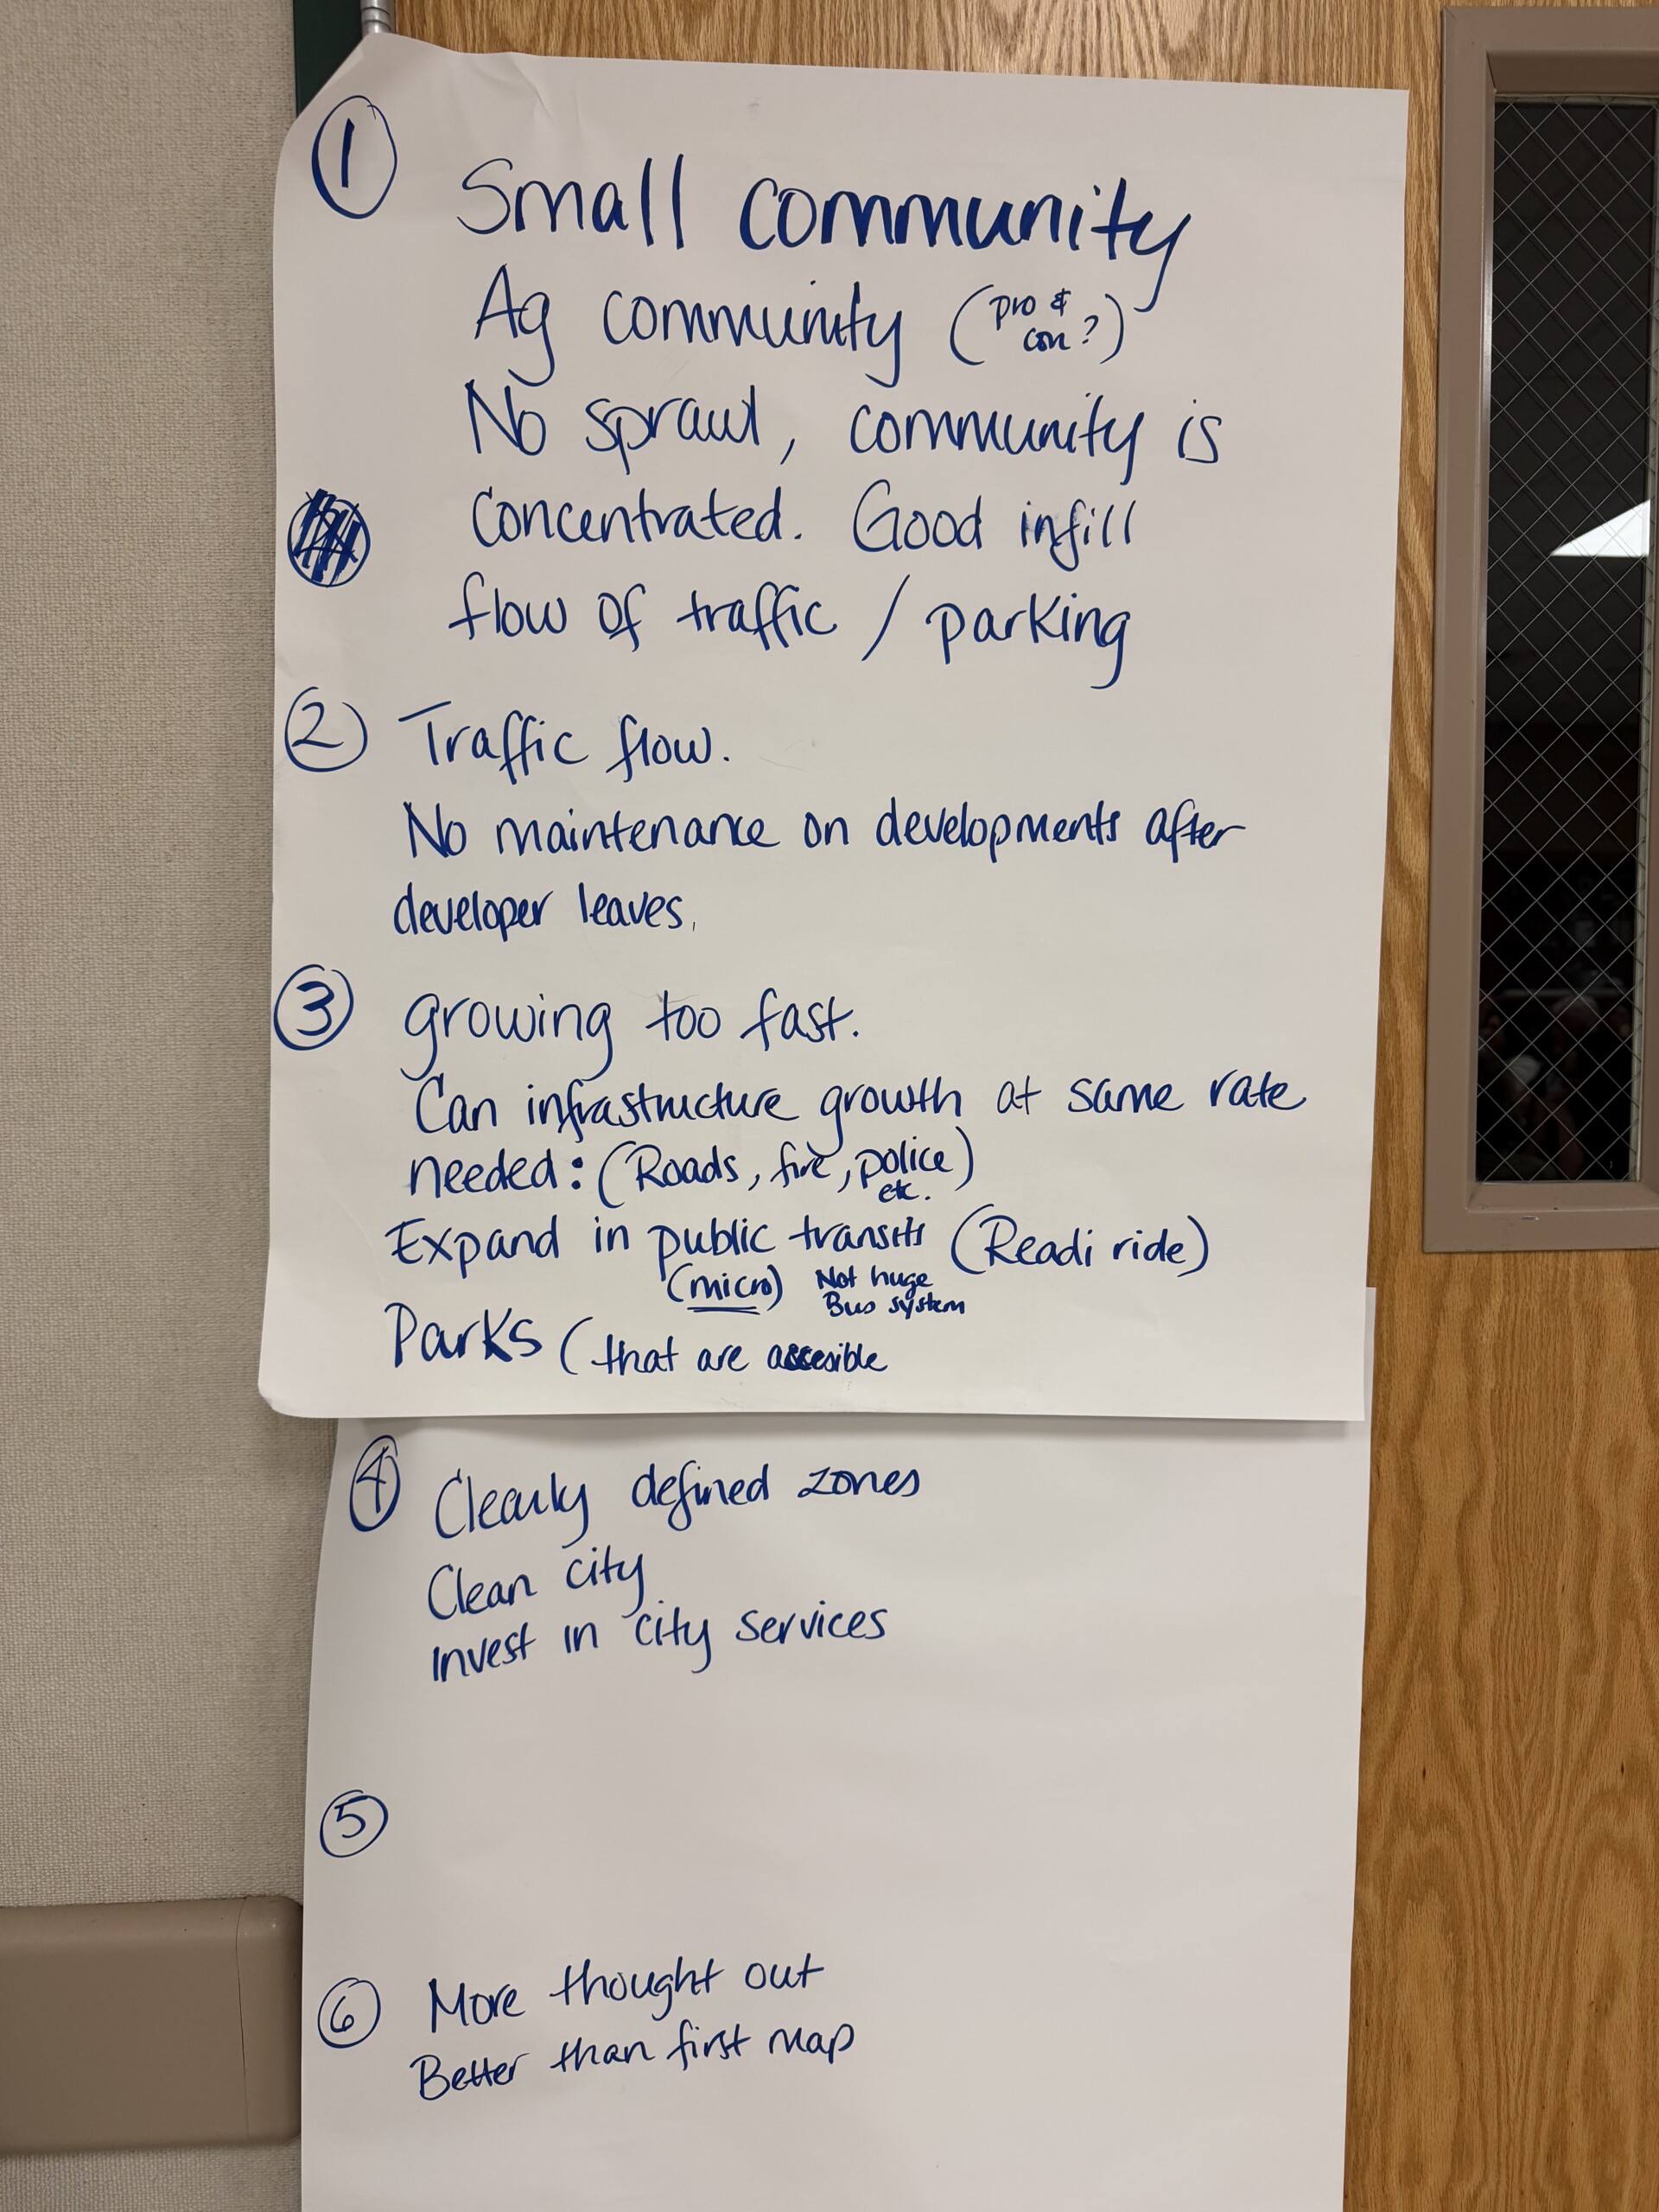 1
Small community
Ag community (pro &
con?)
No sprawl, community is
concentrated. Good infill
flow of traffic / parking
2 Traffic flow.
No maintenance on developments after
developer leaves.
3 growing too fast.
Can infrastructure growth at same rate
needed: (Roads, fire, police)
etc.
Expand in public transits (Readi ride)
(micro) Not huge
Bus system
Parks (that are accesible
4 Clearly defined zones
Clean city
Invest in city services
5
6 More thought out
Better than first map